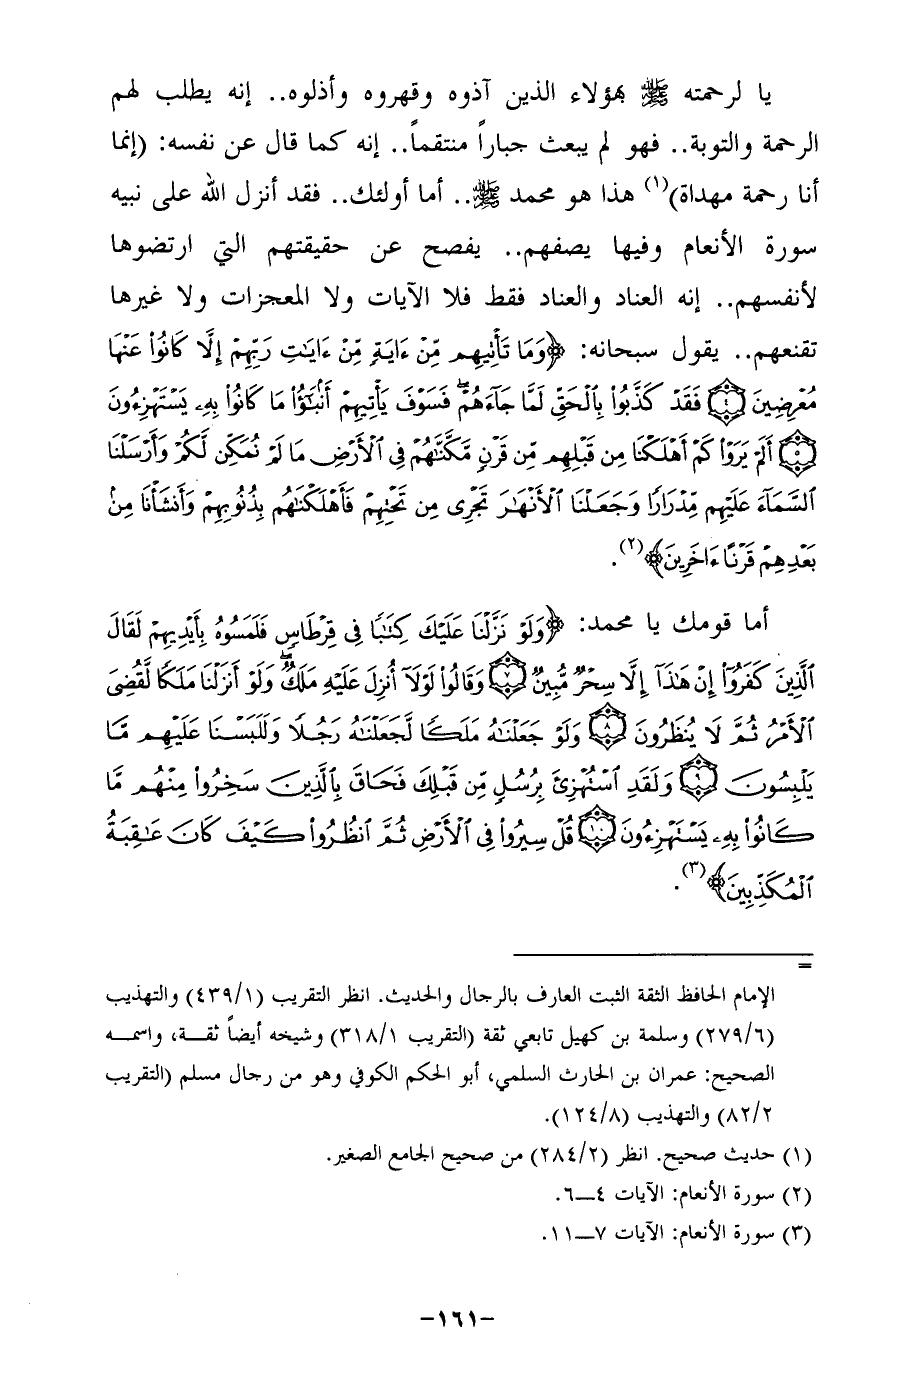 يا لرحمته ﷺ بهؤلاء الذين آذوه وقهروه وأذلوه.. إنه يطلب لهم
الرحمة والتوبة.. فهو لم يبعث جباراً منتقماً.. إنه كما قال عن نفسه: (إنما
أنا رحمة مهداة)(١) هذا هو محمد ﷺ.. أما أولئك.. فقد أنزل الله على نبيه
سورة الأنعام وفيها يصفهم.. يفصح عن حقيقتهم التي ارتضوها
لأنفسهم.. إنه العناد والعناد فقط فلا الآيات ولا المعجزات ولا غيرها
تقنعهم.. يقول سبحانه: ﴿وَمَا تَأْتِيهِم مِّنْ ءَايَةٍ مِّنْ ءَايَٰتِ رَبِّهِمْ إِلَّا كَانُوا۟ عَنْهَا
مُعْرِضِينَ ﴿٤﴾ فَقَدْ كَذَّبُوا۟ بِٱلْحَقِّ لَمَّا جَآءَهُمْ ۖ فَسَوْفَ يَأْتِيهِمْ أَنۢبَٰٓؤُا۟ مَا كَانُوا۟ بِهِۦ يَسْتَهْزِءُونَ
﴿٥﴾ أَلَمْ يَرَوْا۟ كَمْ أَهْلَكْنَا مِن قَبْلِهِم مِّن قَرْنٍ مَّكَّنَّٰهُمْ فِى ٱلْأَرْضِ مَا لَمْ نُمَكِّن لَّكُمْ وَأَرْسَلْنَا
ٱلسَّمَآءَ عَلَيْهِم مِّدْرَارًا وَجَعَلْنَا ٱلْأَنْهَٰرَ تَجْرِى مِن تَحْتِهِمْ فَأَهْلَكْنَٰهُم بِذُنُوبِهِمْ وَأَنشَأْنَا مِنۢ
بَعْدِهِمْ قَرْنًا ءَاخَرِينَ﴾(٢).
أما قومك يا محمد: ﴿وَلَوْ نَزَّلْنَا عَلَيْكَ كِتَٰبًا فِى قِرْطَاسٍ فَلَمَسُوهُ بِأَيْدِيهِمْ لَقَالَ
ٱلَّذِينَ كَفَرُوٓا۟ إِنْ هَٰذَآ إِلَّا سِحْرٌ مُّبِينٌ ﴿٧﴾ وَقَالُوا۟ لَوْلَآ أُنزِلَ عَلَيْهِ مَلَكٌ ۖ وَلَوْ أَنزَلْنَا مَلَكًا لَّقُضِىَ
ٱلْأَمْرُ ثُمَّ لَا يُنظَرُونَ ﴿٨﴾ وَلَوْ جَعَلْنَٰهُ مَلَكًا لَّجَعَلْنَٰهُ رَجُلًا وَلَلَبَسْنَا عَلَيْهِم مَّا
يَلْبِسُونَ ﴿٩﴾ وَلَقَدِ ٱسْتُهْزِئَ بِرُسُلٍ مِّن قَبْلِكَ فَحَاقَ بِٱلَّذِينَ سَخِرُوا۟ مِنْهُم مَّا
كَانُوا۟ بِهِۦ يَسْتَهْزِءُونَ ﴿١٠﴾ قُلْ سِيرُوا۟ فِى ٱلْأَرْضِ ثُمَّ ٱنظُرُوا۟ كَيْفَ كَانَ عَٰقِبَةُ
ٱلْمُكَذِّبِينَ﴾(٣).
=
الإمام الحافظ الثقة الثبت العارف بالرجال والحديث. انظر التقريب (٤٣٩/١) والتهذيب
(٢٧٩/٦) وسلمة بن كهيل تابعي ثقة (التقريب ٣١٨/١) وشيخه أيضاً ثقــة، واسمــه
الصحيح: عمران بن الحارث السلمي، أبو الحكم الكوفي وهو من رجال مسلم (التقريب
٨٢/٢) والتهذيب (١٢٤/٨).
(١) حديث صحيح. انظر (٢٨٤/٢) من صحيح الجامع الصغير.
(٢) سورة الأنعام: الآيات ٤ــ٦.
(٣) سورة الأنعام: الآيات ٧ــ١١.
-١٦١-